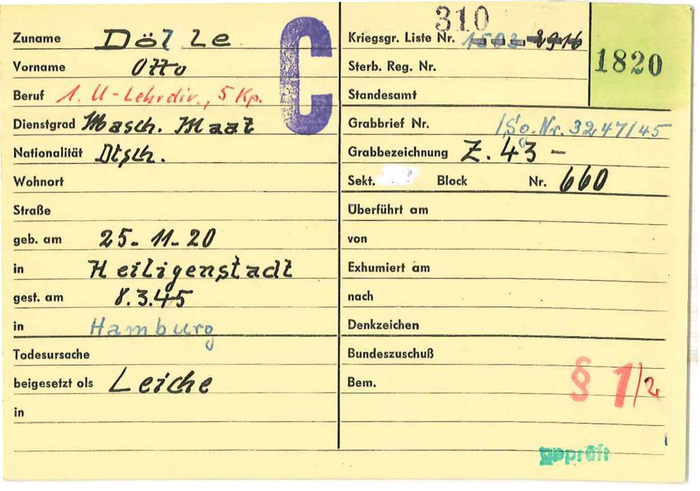 310
Zuname Dölle
Vorname Otto
Beruf 1. U-Lehrdiv., 5 Kp.
C
Dienstgrad Masch. Maat
Nationalität Dtsch.
Wohnort
Straße
geb. am 25-11-20
in Heiligenstadt
gest. am 8.3.45
in Hamburg
Todesursache
beigesetzt als Leiche
in
Kriegsgr. Liste Nr. 1503 2916
1820
Sterb. Reg. Nr.
Standesamt
Grabbrief Nr. /So. Nr. 3247/45
Grabbezeichnung Z. 43 -
Sekt. Block Nr. 660
Überführt am
von
Exhumiert am
nach
Denkzeichen
Bundeszuschuß
Bem. § 1/2
geprüft